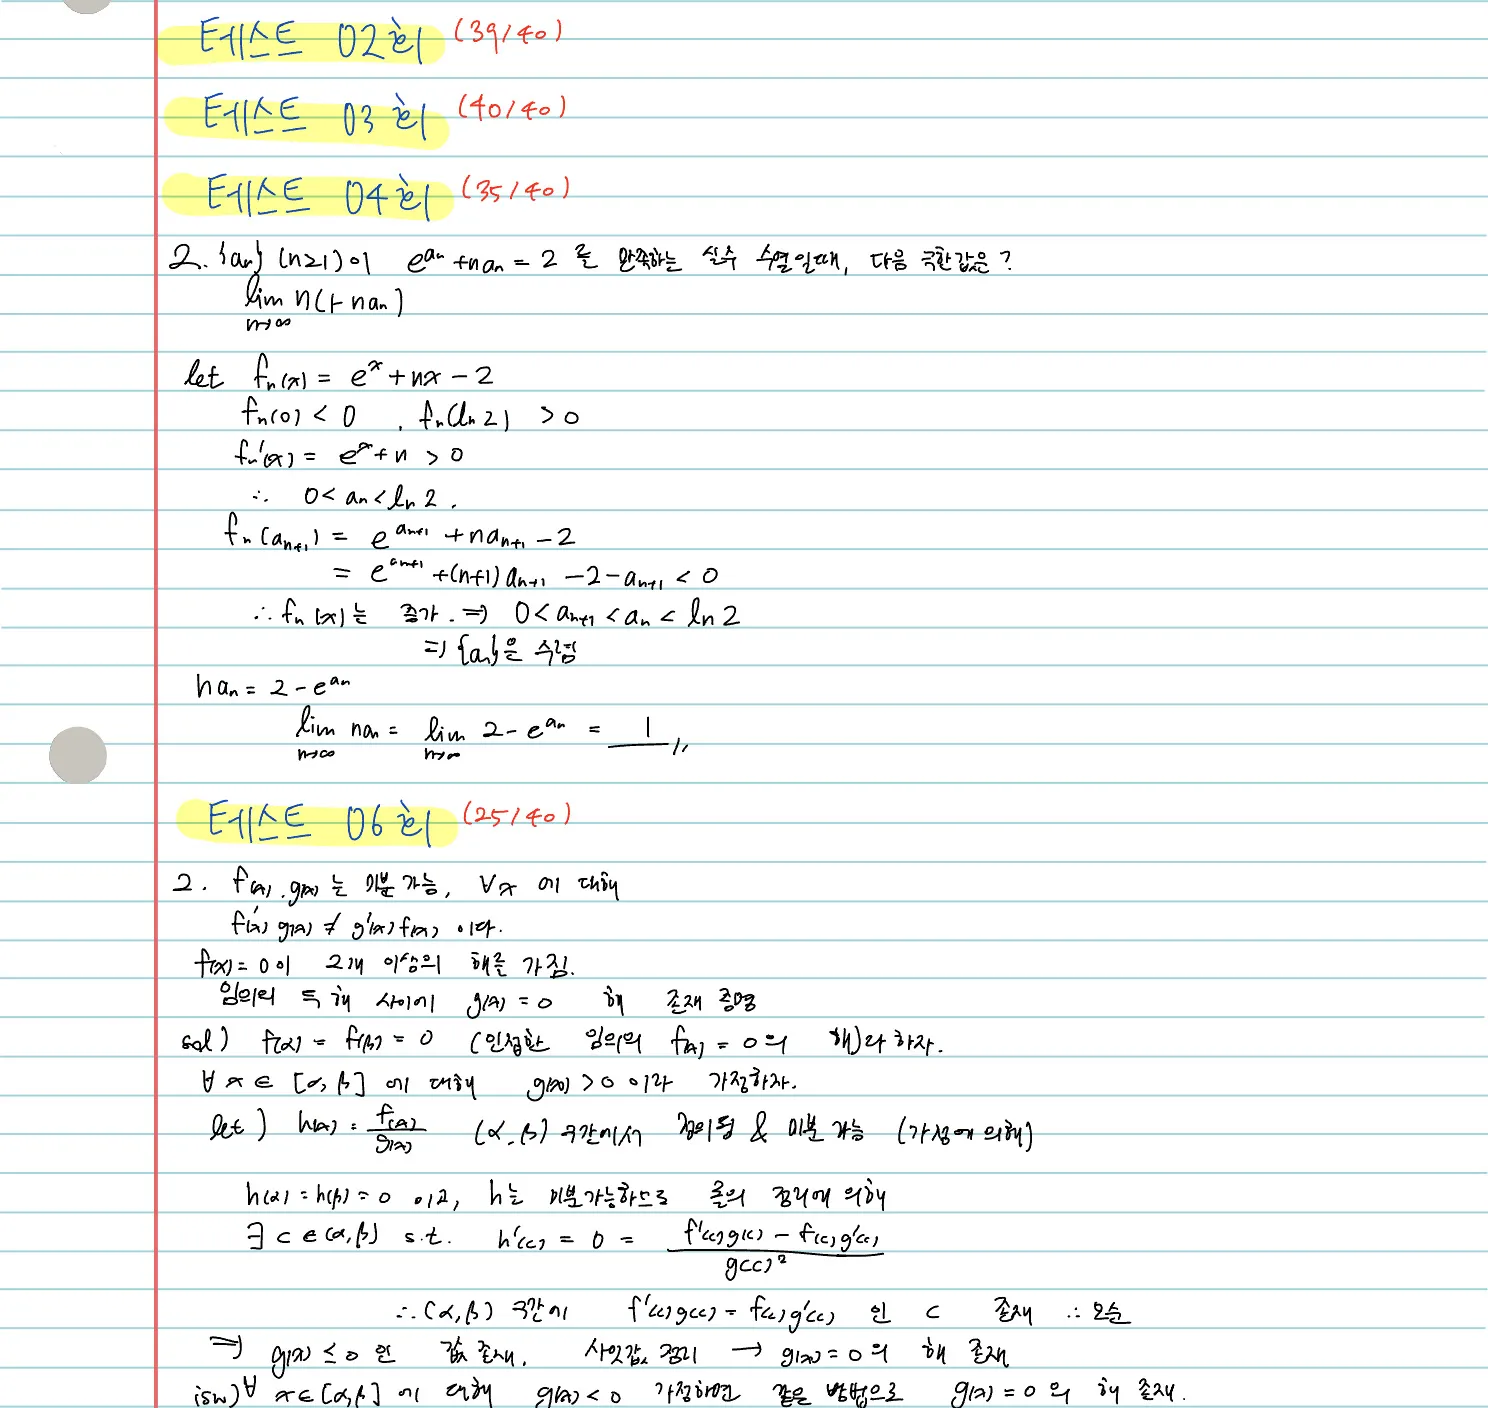 테스트 02회 (39/40)
테스트 03회 (40/40)
테스트 04회 (35/40)
2. {an} (n≥1)이 e^an + nan = 2 를 만족하는 실수 수열일때, 다음 극한값은?
lim n→∞ n(1-nan)
let fn(x) = e^x + nx - 2
fn(0) < 0 , fn(ln2) > 0
fn'(x) = e^x + n > 0
∴ 0 < an < ln 2 .
fn(an+1) = e^an+1 + nan+1 - 2
= e^an+1 + (n+1)an+1 - 2 - an+1 < 0
∴ fn(x)는 증가. ⇒ 0 < an+1 < an < ln 2
⇒ {an}은 수렴
nan = 2 - e^an
lim n→∞ nan = lim n→∞ 2 - e^an = 1
테스트 06회 (25/40)
2. f(x), g(x)는 미분가능, ∀x 에 대해
f'(x)g(x) ≠ g'(x)f(x) 이다.
f(x) = 0이 2개 이상의 해를 가짐.
임의의 두 해 사이에 g(x) = 0 해 존재 증명
sol) f(α) = f(β) = 0 (인접한 임의의 f(x) = 0의 해)라 하자.
∀x ∈ [α, β] 에 대해 g(x) > 0 이라 가정하자.
let) h(x) = f(x)/g(x) (α, β) 구간에서 정의됨 & 미분가능 (가정에 의해)
h(α) = h(β) = 0 이고, h는 미분가능하므로 롤의 정리에 의해
∃ c ∈ (α, β) s.t. h'(c) = 0 = f'(c)g(c) - f(c)g'(c) / g(c)^2
∴ (α, β) 구간에 f'(c)g(c) = f(c)g'(c) 인 c 존재 ∴ 모순
⇒ g(x) ≤ 0 인 값 존재. 사잇값 정리 → g(x) = 0의 해 존재
isw) ∀ x ∈ [α, β] 에 대해 g(x) < 0 가정하면 같은 방법으로 g(x) = 0의 해 존재.